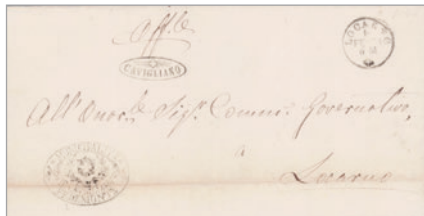 Off.le
CAVIGLIANO
LOCARNO
All'Onor.le Sig.r Comm. Governativo,
a
Locarno